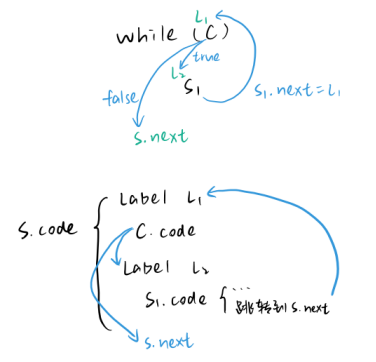 L₁
while (C)
true
L₂
false
S₁
S₁.next = L₁
S.next
Label L₁
S.code
C.code
Label L₂
S₁.code { ... 跳转到 S.next
S.next